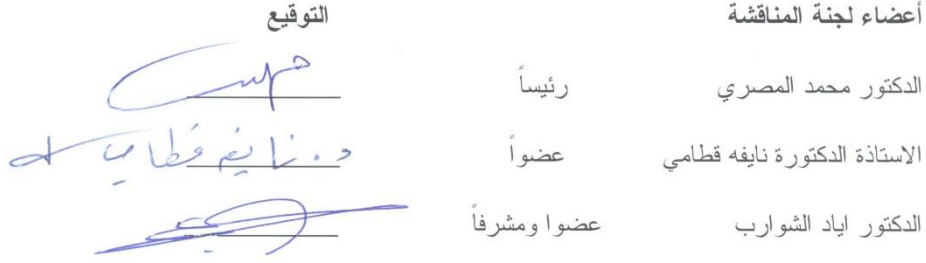 أعضاء لجنة المناقشة التوقيع
الدكتور محمد المصري رئيساً
الاستاذة الدكتورة نايفه قطامي عضواً د. نايفه قطامي
الدكتور اياد الشوارب عضوا ومشرفاً